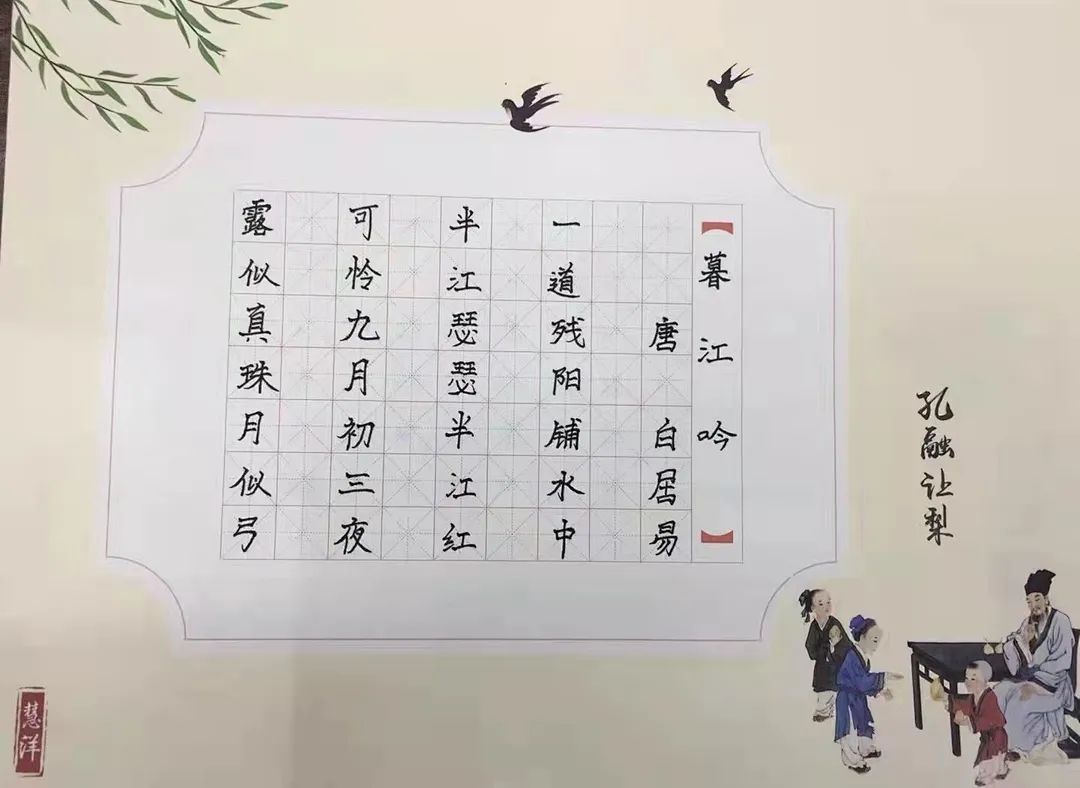 【暮江吟】
唐 白居易
一道残阳铺水中
半江瑟瑟半江红
可怜九月初三夜
露似真珠月似弓
孔融让梨
慧洋